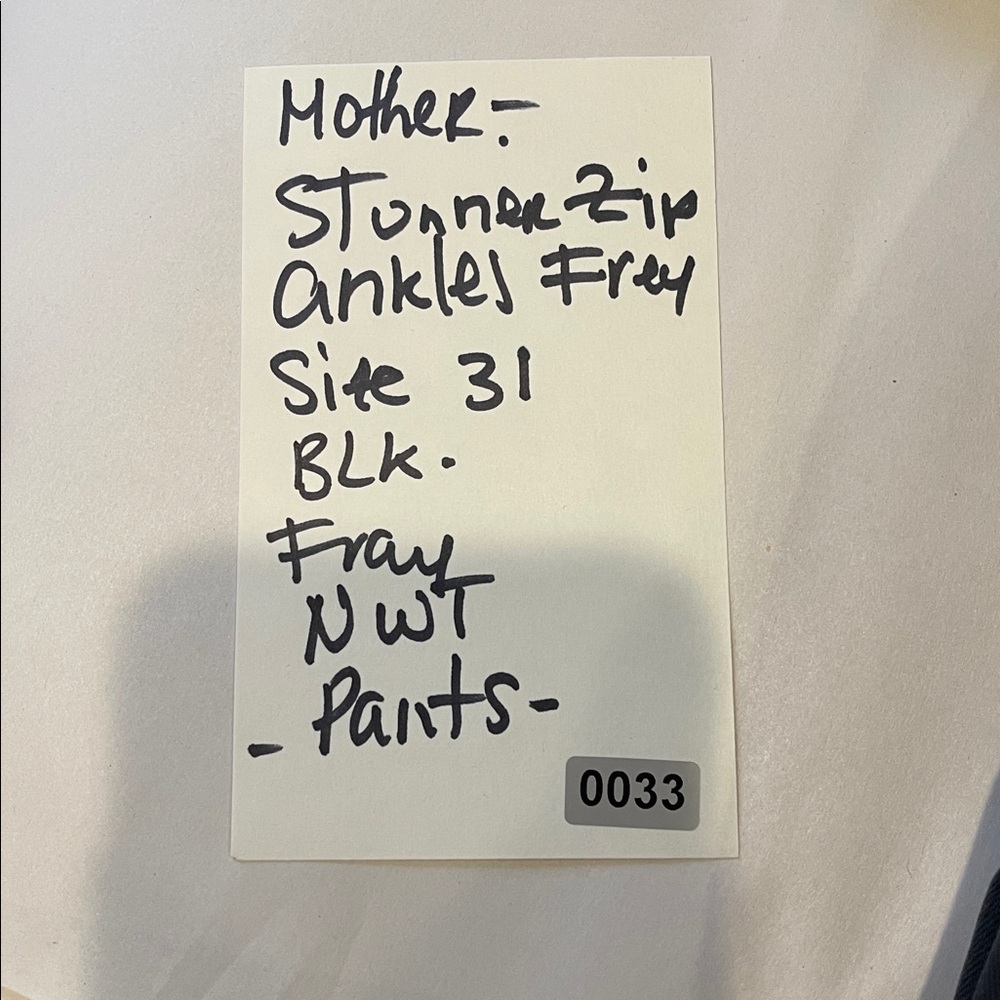 Mother.-
Stunner Zip
ankles Frey
Size 31
BLK.
Fray
NWT
- Pants -
0033